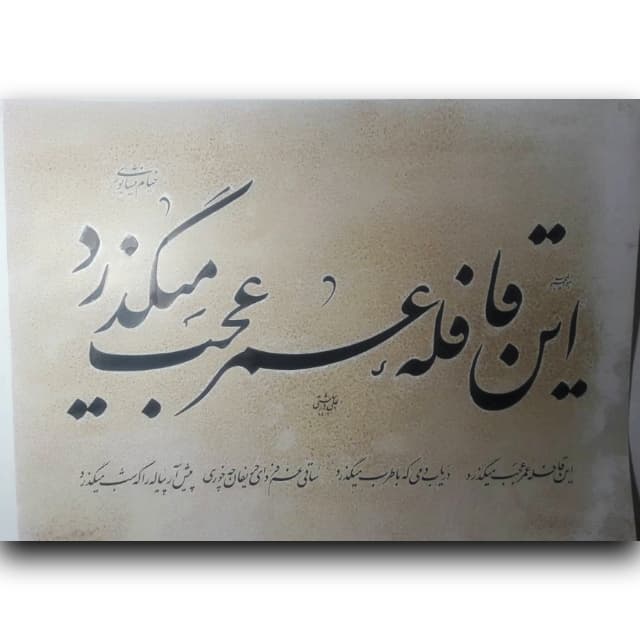 خیام نیشابوری
این قافله عمر عجب میگذرد
این قافله عمر عجب میگذرد دریاب دمی که با طرب میگذرد ساقی غم فردای حریفان چه خوری پیش آر پیاله را که شب میگذرد